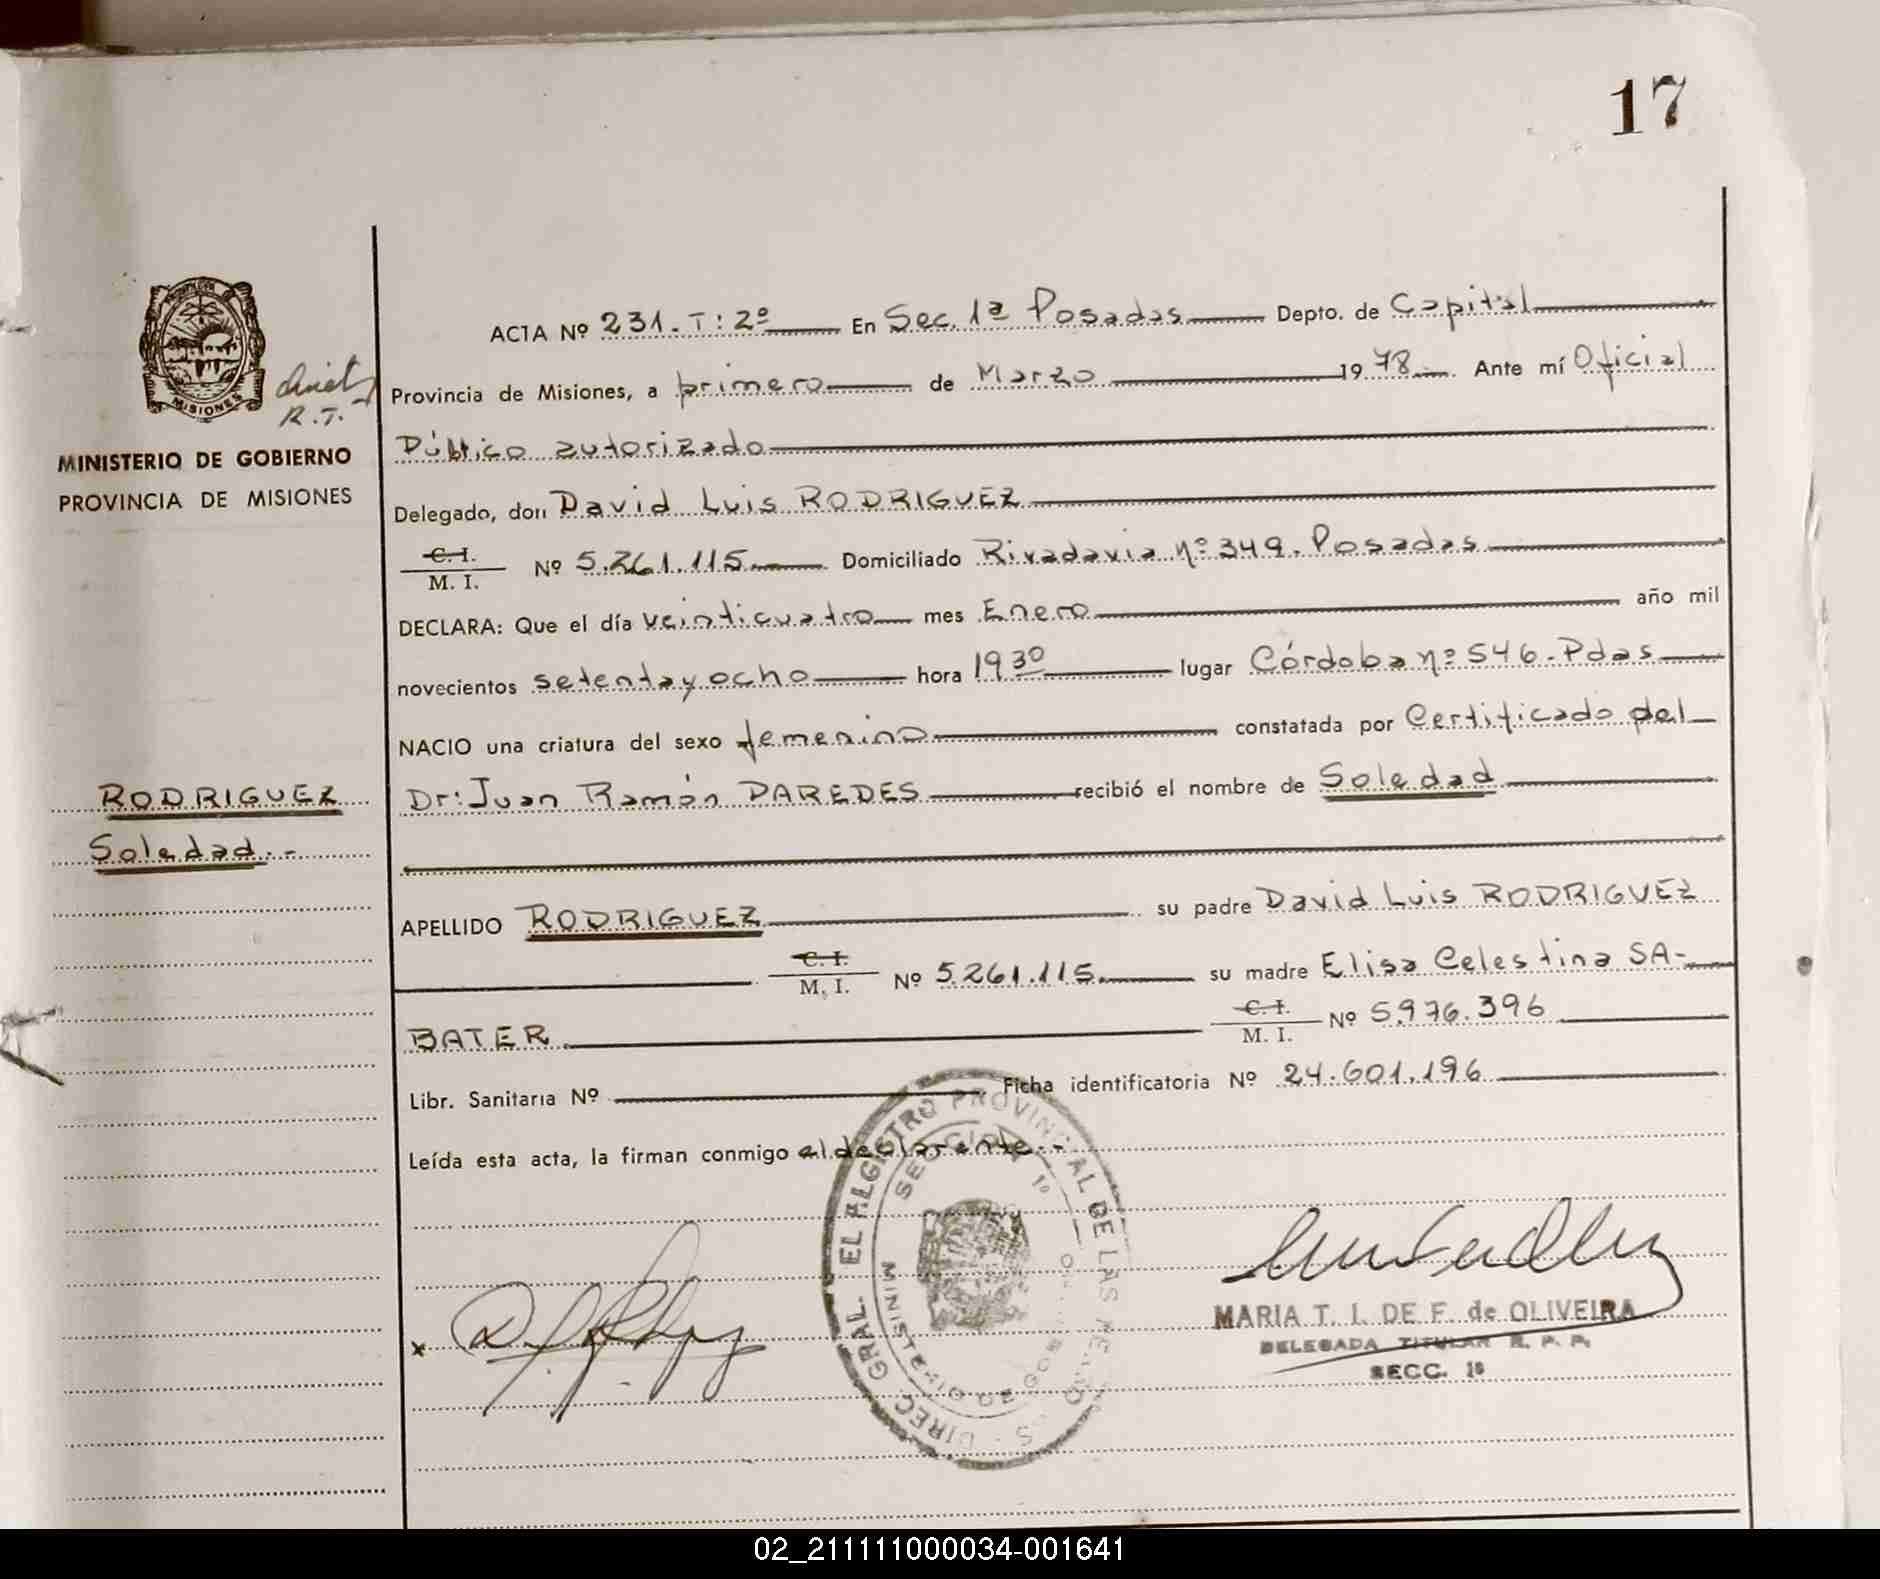 17
ACTA Nº 231. T: 2º En Sec. 1ª Posadas Depto. de Capital
Provincia de Misiones, a primero de Marzo 1978 Ante mí Oficial
Público autorizado
Delegado, don David Luis RODRIGUEZ
C. I.
M. I. Nº 5.261.115. Domiciliado Rivadavia nº 349. Posadas
DECLARA: Que el día veinticuatro mes Enero año mil
novecientos setenta y ocho hora 19 30 lugar Córdoba nº 546. Pdas
NACIO una criatura del sexo femenino constatada por Certificado del
Dr: Juan Ramón PAREDES recibió el nombre de Soledad
APELLIDO RODRIGUEZ su padre David Luis RODRIGUEZ
C. I.
M. I. Nº 5.261.115. su madre Elisa Celestina SA-
BATER C. I.
M. I. Nº 5.976.396
Libr. Sanitaria Nº Ficha identificatoria Nº 24.601.196
Leída esta acta, la firman conmigo el declarante.-
MISIONES
R. T.
MINISTERIO DE GOBIERNO
PROVINCIA DE MISIONES
RODRIGUEZ
Soledad.-
x
PROVINCIAL DE LAS
MARIA T. I. DE F. de OLIVEIRA
DELEGADA TITULAR R. P. P.
SECC. 1ª
02_211111000034-001641